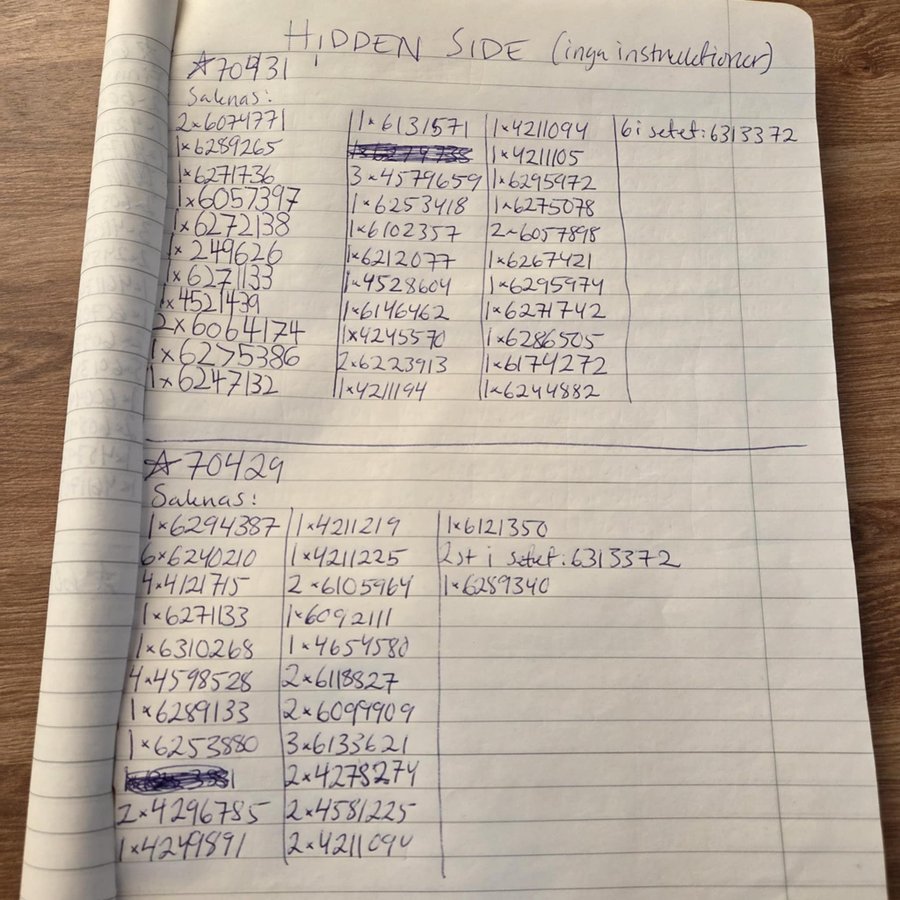 HIDDEN SIDE (inga instruktioner)
☆70431
Saknas:
2×6074771
1×6289265
1×6271736
1×6057397
1×6272138
1×249626
1×6271133
1×4521439
2×6064174
1×6275386
1×6247132
1×6131571
3×4579659
1×6253418
1×6102357
1×6212077
1×4528604
1×6146462
1×4245570
2×6223913
1×4211194
1×4211094
1×4211105
1×6295972
1×6275078
2×6057898
1×6267421
1×6295974
1×6271742
1×6286505
1×6174272
1×6244882
6 i setet: 6313372
☆70429
Saknas:
1×6294387
6×6240210
4×4121715
1×6271133
1×6310268
4×4598528
1×6289133
1×6253880
2×4296785
1×4249891
1×4211219
1×4211225
2×6105964
1×6092111
1×4654580
2×6118827
2×6099909
3×6133621
2×4278274
2×4581225
2×4211094
1×6121350
2st i setet: 6313372
1×6289340